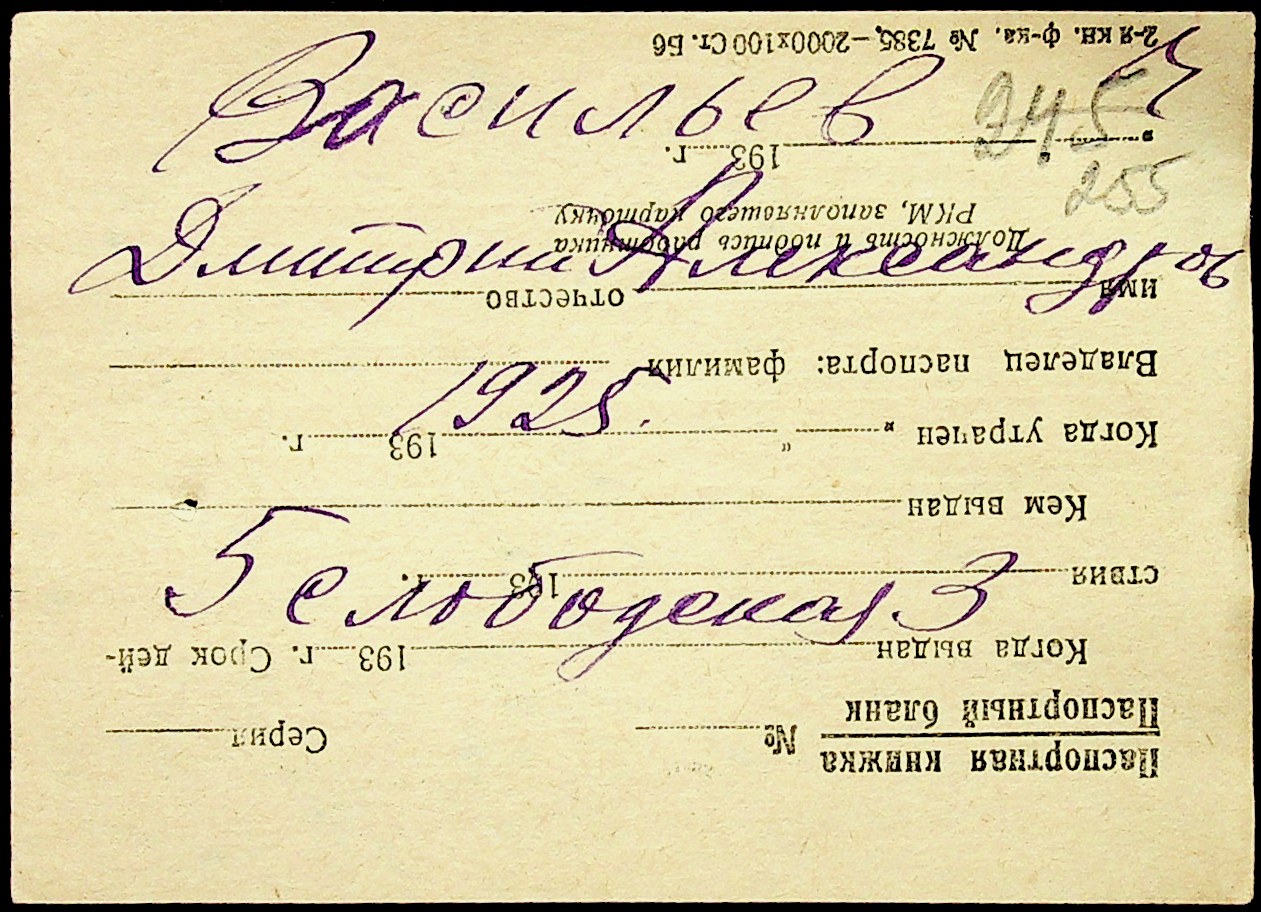 Васильев
245
255
Дмитрий Александров
1925.
5 слободская 3
Паспортная книжка
Паспортный бланк № Серия
Когда выдан 193 г. Срок дей-
ствия 193 г.
Кем выдан
Когда утрачен „ “ 193 г.
Владелец паспорта: фамилия
имя отчество
Должность и подпись работника
РКМ, заполняющего карточку
„ 193 г.
2-я кн. ф-ка. № 7385.—2000х100 Ст. Б6